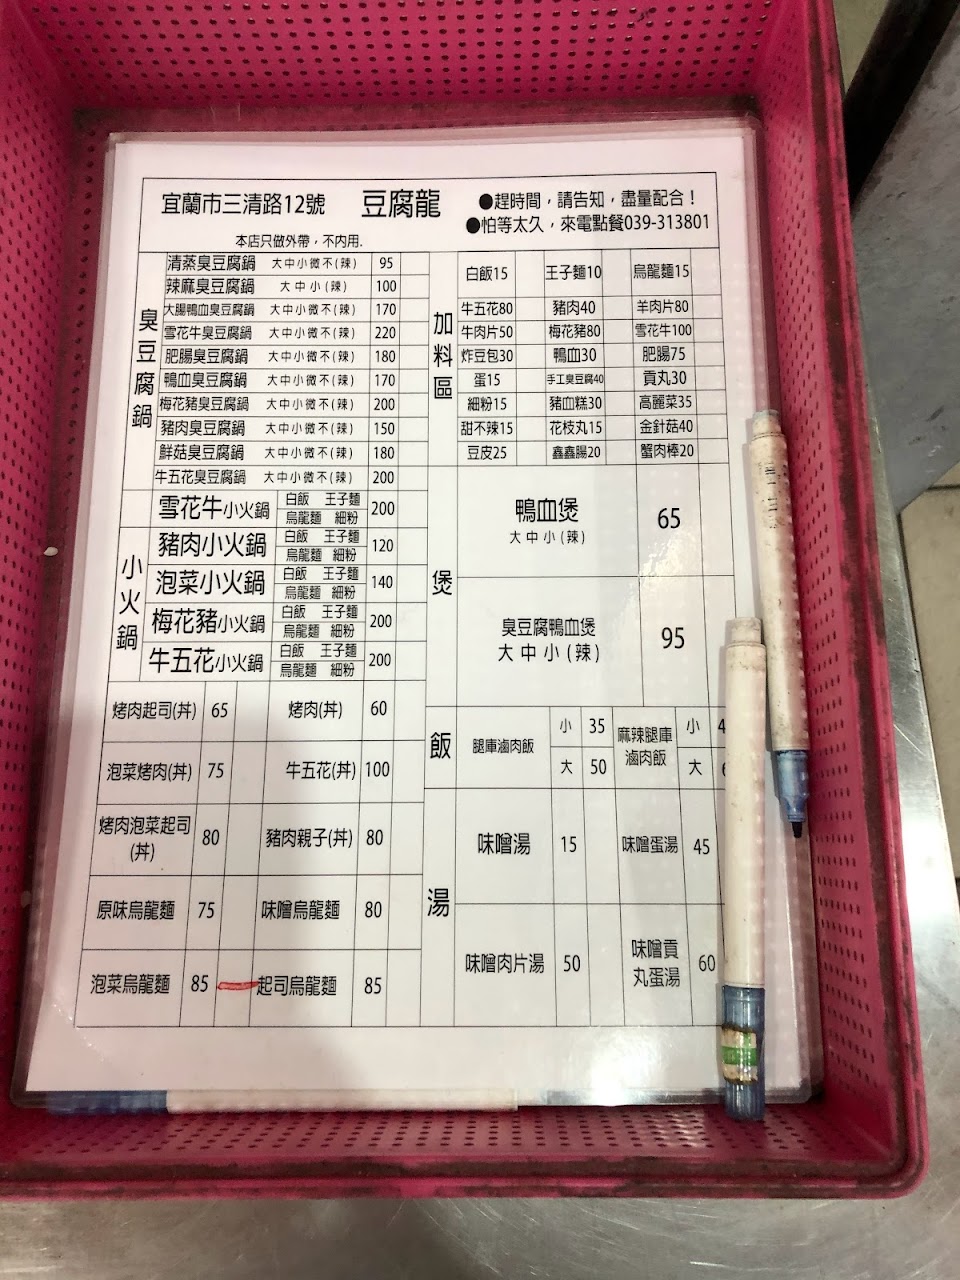 宜蘭市三清路12號 豆腐龍 ●趕時間，請告知，盡量配合！
●怕等太久，來電點餐039-313801
本店只做外帶，不內用.
臭豆腐鍋
清蒸臭豆腐鍋 大中小微不(辣) 95
辣麻臭豆腐鍋 大中小(辣) 100
大腸鴨血臭豆腐鍋 大中小微不(辣) 170
雪花牛臭豆腐鍋 大中小微不(辣) 220
肥腸臭豆腐鍋 大中小微不(辣) 180
鴨血臭豆腐鍋 大中小微不(辣) 170
梅花豬臭豆腐鍋 大中小微不(辣) 200
豬肉臭豆腐鍋 大中小微不(辣) 150
鮮菇臭豆腐鍋 大中小微不(辣) 180
牛五花臭豆腐鍋 大中小微不(辣) 200
小火鍋
雪花牛小火鍋 白飯 王子麵 烏龍麵 細粉 200
豬肉小火鍋 白飯 王子麵 烏龍麵 細粉 120
泡菜小火鍋 白飯 王子麵 烏龍麵 細粉 140
梅花豬小火鍋 白飯 王子麵 烏龍麵 細粉 200
牛五花小火鍋 白飯 王子麵 烏龍麵 細粉 200
烤肉起司(丼) 65 烤肉(丼) 60
泡菜烤肉(丼) 75 牛五花(丼) 100
烤肉泡菜起司(丼) 80 豬肉親子(丼) 80
原味烏龍麵 75 味噌烏龍麵 80
泡菜烏龍麵 85 起司烏龍麵 85
加料區
白飯15 王子麵10 烏龍麵15
牛五花80 豬肉40 羊肉片80
牛肉片50 梅花豬80 雪花牛100
炸豆包30 鴨血30 肥腸75
蛋15 手工臭豆腐40 貢丸30
細粉15 豬血糕30 高麗菜35
甜不辣15 花枝丸15 金針菇40
豆皮25 鑫鑫腸20 蟹肉棒20
煲
鴨血煲 65
大中小(辣)
臭豆腐鴨血煲 95
大中小(辣)
飯
腿庫滷肉飯 小 35 大 50
麻辣腿庫滷肉飯 小 大
湯
味噌湯 15 味噌蛋湯 45
味噌肉片湯 50 味噌貢丸蛋湯 60